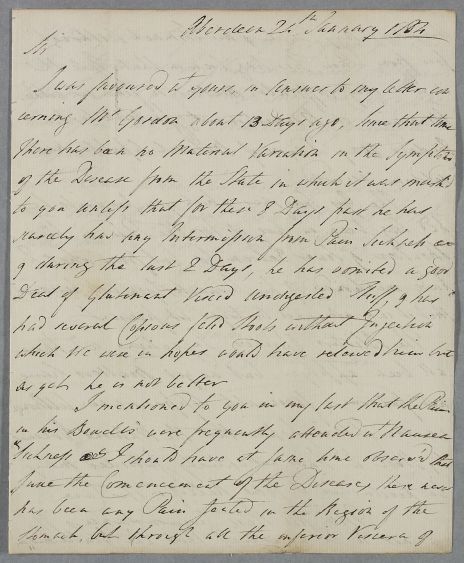 Aberdeen 24th January 1784
Sir
I was favoured wt yours, in answer to my letter con
cerning Mr Gordon about 13 days ago, since that time
there has been no Material Variation in the Symptoms
of the Disease from the State in which it was
to you unless that for these 8 Days past he has
scarcely had any Intermission from Pain
& during the last 2 Days, he has vomited a good
Deal of Glutenant Viscid undigested Stuff, & has
had several Copious fetid Stools without Injection
which we were in hopes would have releived him but
as yet he is not better
I mentioned to you in my last that the Pain
in his Bowells were frequently attended wt Nausea
Sickness & I should have at same time observed that
since the Comencement of the Disease, there never
has been any Pain feeled in the Region of the
Stomach, but through all the inferior Viscera of